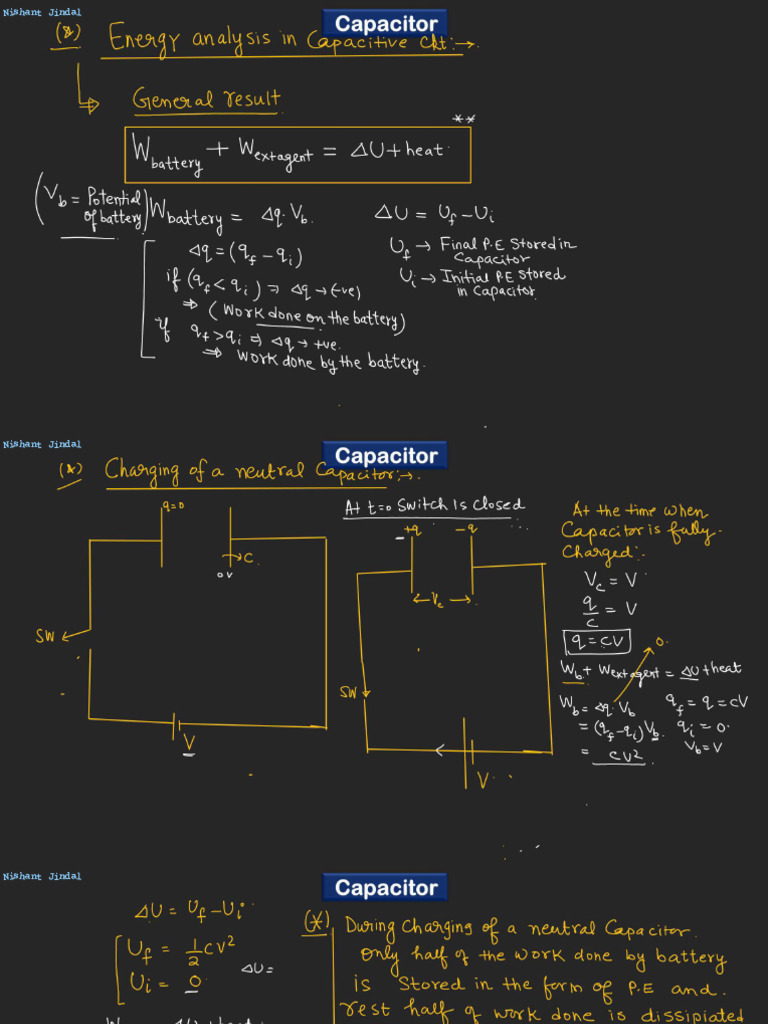 Nishant Jindal
Capacitor
(*) Energy analysis in Capacitive Ckt:→.
General result
**
W battery + W extagent = ΔU + heat.
(V_b = Potential of battery) W battery = Δq. V_b.
Δq = (q_f - q_i)
if (q_f < q_i) ⇒ Δq → (-ve)
⇒ (Work done on the battery)
if q_f > q_i ⇒ Δq → +ve.
⇒ Work done by the battery.
ΔU = U_f - U_i
U_f → Final P.E Stored in
Capacitor
U_i → Initial P.E Stored
in Capacitor.
Nishant Jindal
Capacitor
(*) Charging of a neutral Capacitor:→.
q=0
C
0V
SW
V
At t=0 Switch Is Closed
+q -q
V_c
SW
V
At the time when
Capacitor is fully
Charged:.
V_c = V
q/C = V
q = CV
0.
W_b + W extagent = ΔU + heat
W_b = Δq. V_b
= (q_f - q_i) V_b
= CV²
q_f = q = CV
q_i = 0.
V_b = V
Nishant Jindal
Capacitor
ΔU = U_f - U_i
U_f = 1/2 CV²
U_i = 0
ΔU =
(*) During Charging of a neutral Capacitor.
only half of the work done by battery
is Stored in the form of P.E and.
rest half of work done is dissipiated